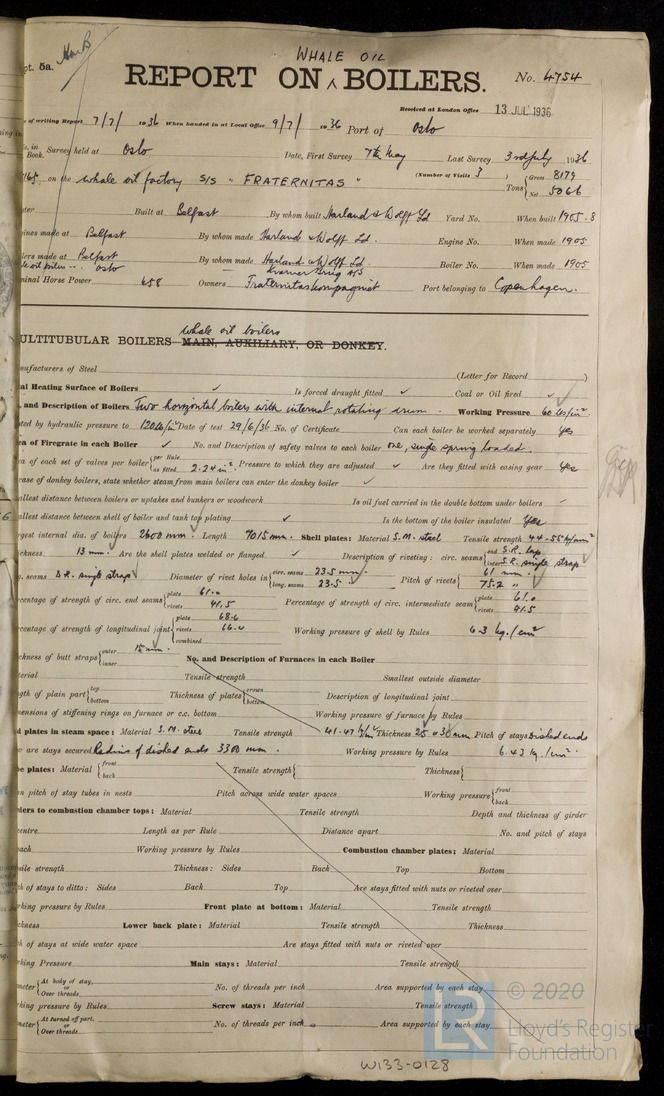 pt. 5a.
WHALE OIL
REPORT ON ^ BOILERS.
No. 4754
Received at London Office 13 JUL 1936
of writing Report 7/7/ 1936 When handed in at Local Office 9/7/ 1936 Port of Oslo
in Book. Survey held at Oslo Date, First Survey 7th May Last Survey 3rd July 1936
on the whale oil factory S/S "FRATERNITAS" (Number of Visits 3 ) Tons { Gross 8179
Net 5066
Built at Belfast By whom built Harland & Wolff Ld Yard No. When built 1905-8
ines made at Belfast By whom made Harland & Wolff Ld. Engine No. When made 1905
lers made at Belfast By whom made Harland & Wolff Ld. Boiler No. When made 1905
oil boilers Oslo
minal Horse Power 658 Owners Port belonging to Copenhagen.
whale oil boilers
ULTITUBULAR BOILERS MAIN, AUXILIARY, OR DONKEY.
nufacturers of Steel (Letter for Record )
al Heating Surface of Boilers Is forced draught fitted Coal or Oil fired
. and Description of Boilers Two horizontal boilers with internal rotating drum. Working Pressure 60 lbs/in²
ted by hydraulic pressure to 120 lb/in² Date of test 29/6/36 No. of Certificate Can each boiler be worked separately Yes
ea of Firegrate in each Boiler No. and Description of safety valves to each boiler one, single spring loaded.
ea of each set of valves per boiler { per Rule
as fitted 2.24 in². Pressure to which they are adjusted Are they fitted with easing gear Yes
case of donkey boilers, state whether steam from main boilers can enter the donkey boiler
allest distance between boilers or uptakes and bunkers or woodwork Is oil fuel carried in the double bottom under boilers
allest distance between shell of boiler and tank top plating Is the bottom of the boiler insulated Yes
rgest internal dia. of boilers 2600 mm. Length 7015 mm. Shell plates: Material S.M. steel Tensile strength 44-55 kg/mm²
ickness 13 mm. Are the shell plates welded or flanged Description of riveting: circ. seams { end S.R. lap
inter S.R. single strap
g. seams D.R. single strap Diameter of rivet holes in { circ. seams 23.5 mm.
long. seams 23.5 Pitch of rivets { 61 mm.
75.2 "
rcentage of strength of circ. end seams { plate 61.0
rivets 41.5 Percentage of strength of circ. intermediate seam { plate 61.0
rivets 41.5
rcentage of strength of longitudinal joint { plate 68.6
rivets
combined Working pressure of shell by Rules 6.3 kg./cm²
ckness of butt straps { outer
inner No. and Description of Furnaces in each Boiler
terial Tensile strength Smallest outside diameter
gth of plain part { top
bottom Thickness of plates { crown
bottom Description of longitudinal joint
mensions of stiffening rings on furnace or c.c. bottom Working pressure of furnace by Rules
d plates in steam space: Material S.M. steel Tensile strength 41-47 kg/mm² Thickness 25 & 30 mm Pitch of stays Dished ends
w are stays secured Radius of dished ends 3300 mm. Working pressure by Rules 6.43 kg./cm².
be plates: Material { front
back Tensile strength { Thickness {
an pitch of stay tubes in nests Pitch across wide water spaces Working pressure { front
back
ders to combustion chamber tops: Material Tensile strength Depth and thickness of girder
centre Length as per Rule Distance apart No. and pitch of stays
each Working pressure by Rules Combustion chamber plates: Material
nsile strength Thickness: Sides Back Top Bottom
ch of stays to ditto: Sides Back Top Are stays fitted with nuts or riveted over
rking pressure by Rules Front plate at bottom: Material Tensile strength
ckness Lower back plate: Material Tensile strength Thickness
ch of stays at wide water space Are stays fitted with nuts or riveted over
rking Pressure Main stays: Material Tensile strength
meter { At body of stay,
or
Over threads No. of threads per inch Area supported by each stay
rking pressure by Rules Screw stays: Material Tensile strength
meter { At turned off part,
or
Over threads No. of threads per inch Area supported by each stay
LR © 2020
Lloyd's Register
Foundation
W133-0128